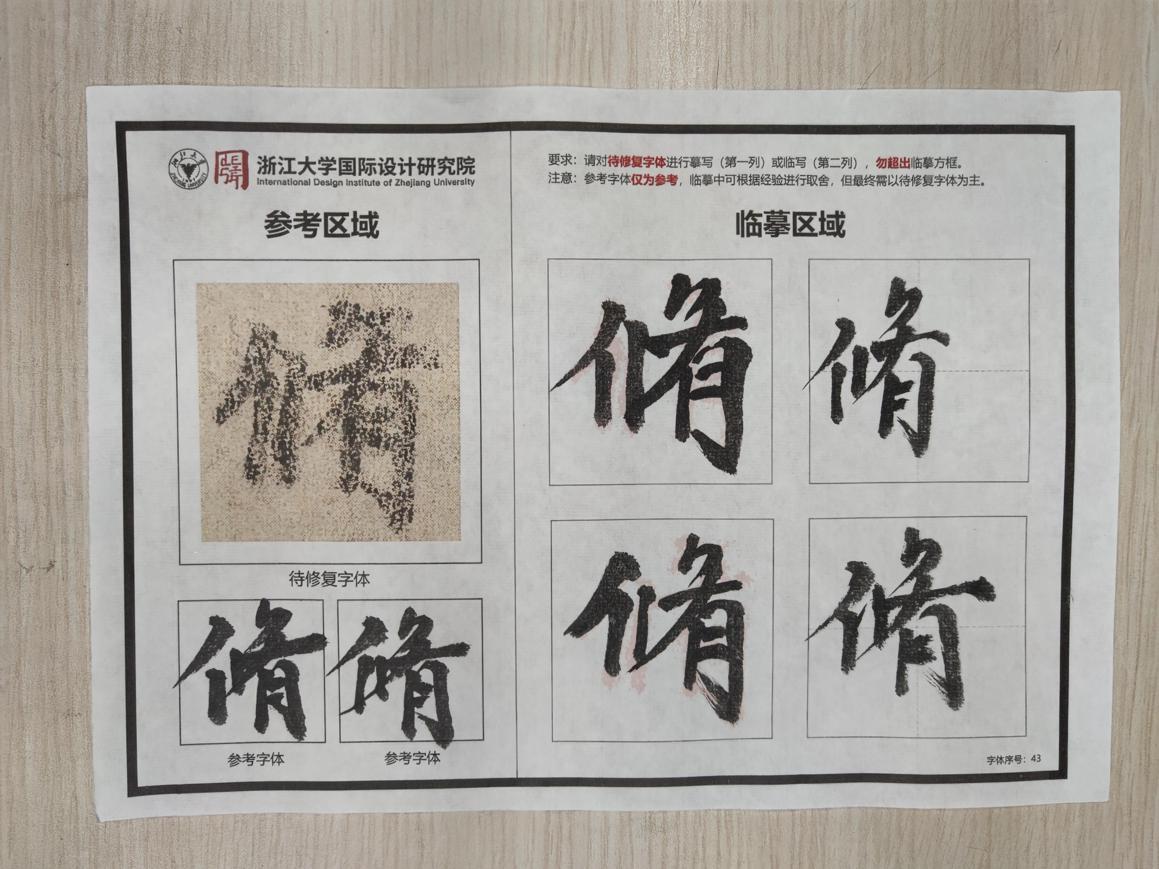 浙江大学国际设计研究院
International Design Institute of Zhejiang University
参考区域
脩
待修复字体
脩 脩
参考字体 参考字体
要求：请对待修复字体进行摹写（第一列）或临写（第二列），勿超出临摹方框。
注意：参考字体仅为参考，临摹中可根据经验进行取舍，但最终需以待修复字体为主。
临摹区域
脩 脩
脩 脩
字体序号：43